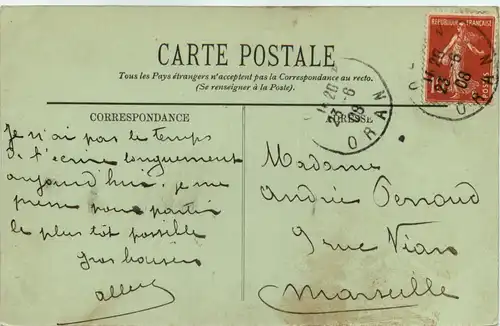 CARTE POSTALE
Tous les Pays étrangers n'acceptent pas la Correspondance au recto.
(Se renseigner à la Poste).
RÉPUBLIQUE FRANÇAISE
POSTES
ORAN
23-6
08
ORAN
23-6
08
CORRESPONDANCE
Je n'ai pas le temps
de t'écrire longuement
aujourd'hui, je me
presse pour partir
le plus tôt possible
Gros baisers
ADRESSE
Madame
André
9 rue
Marseille